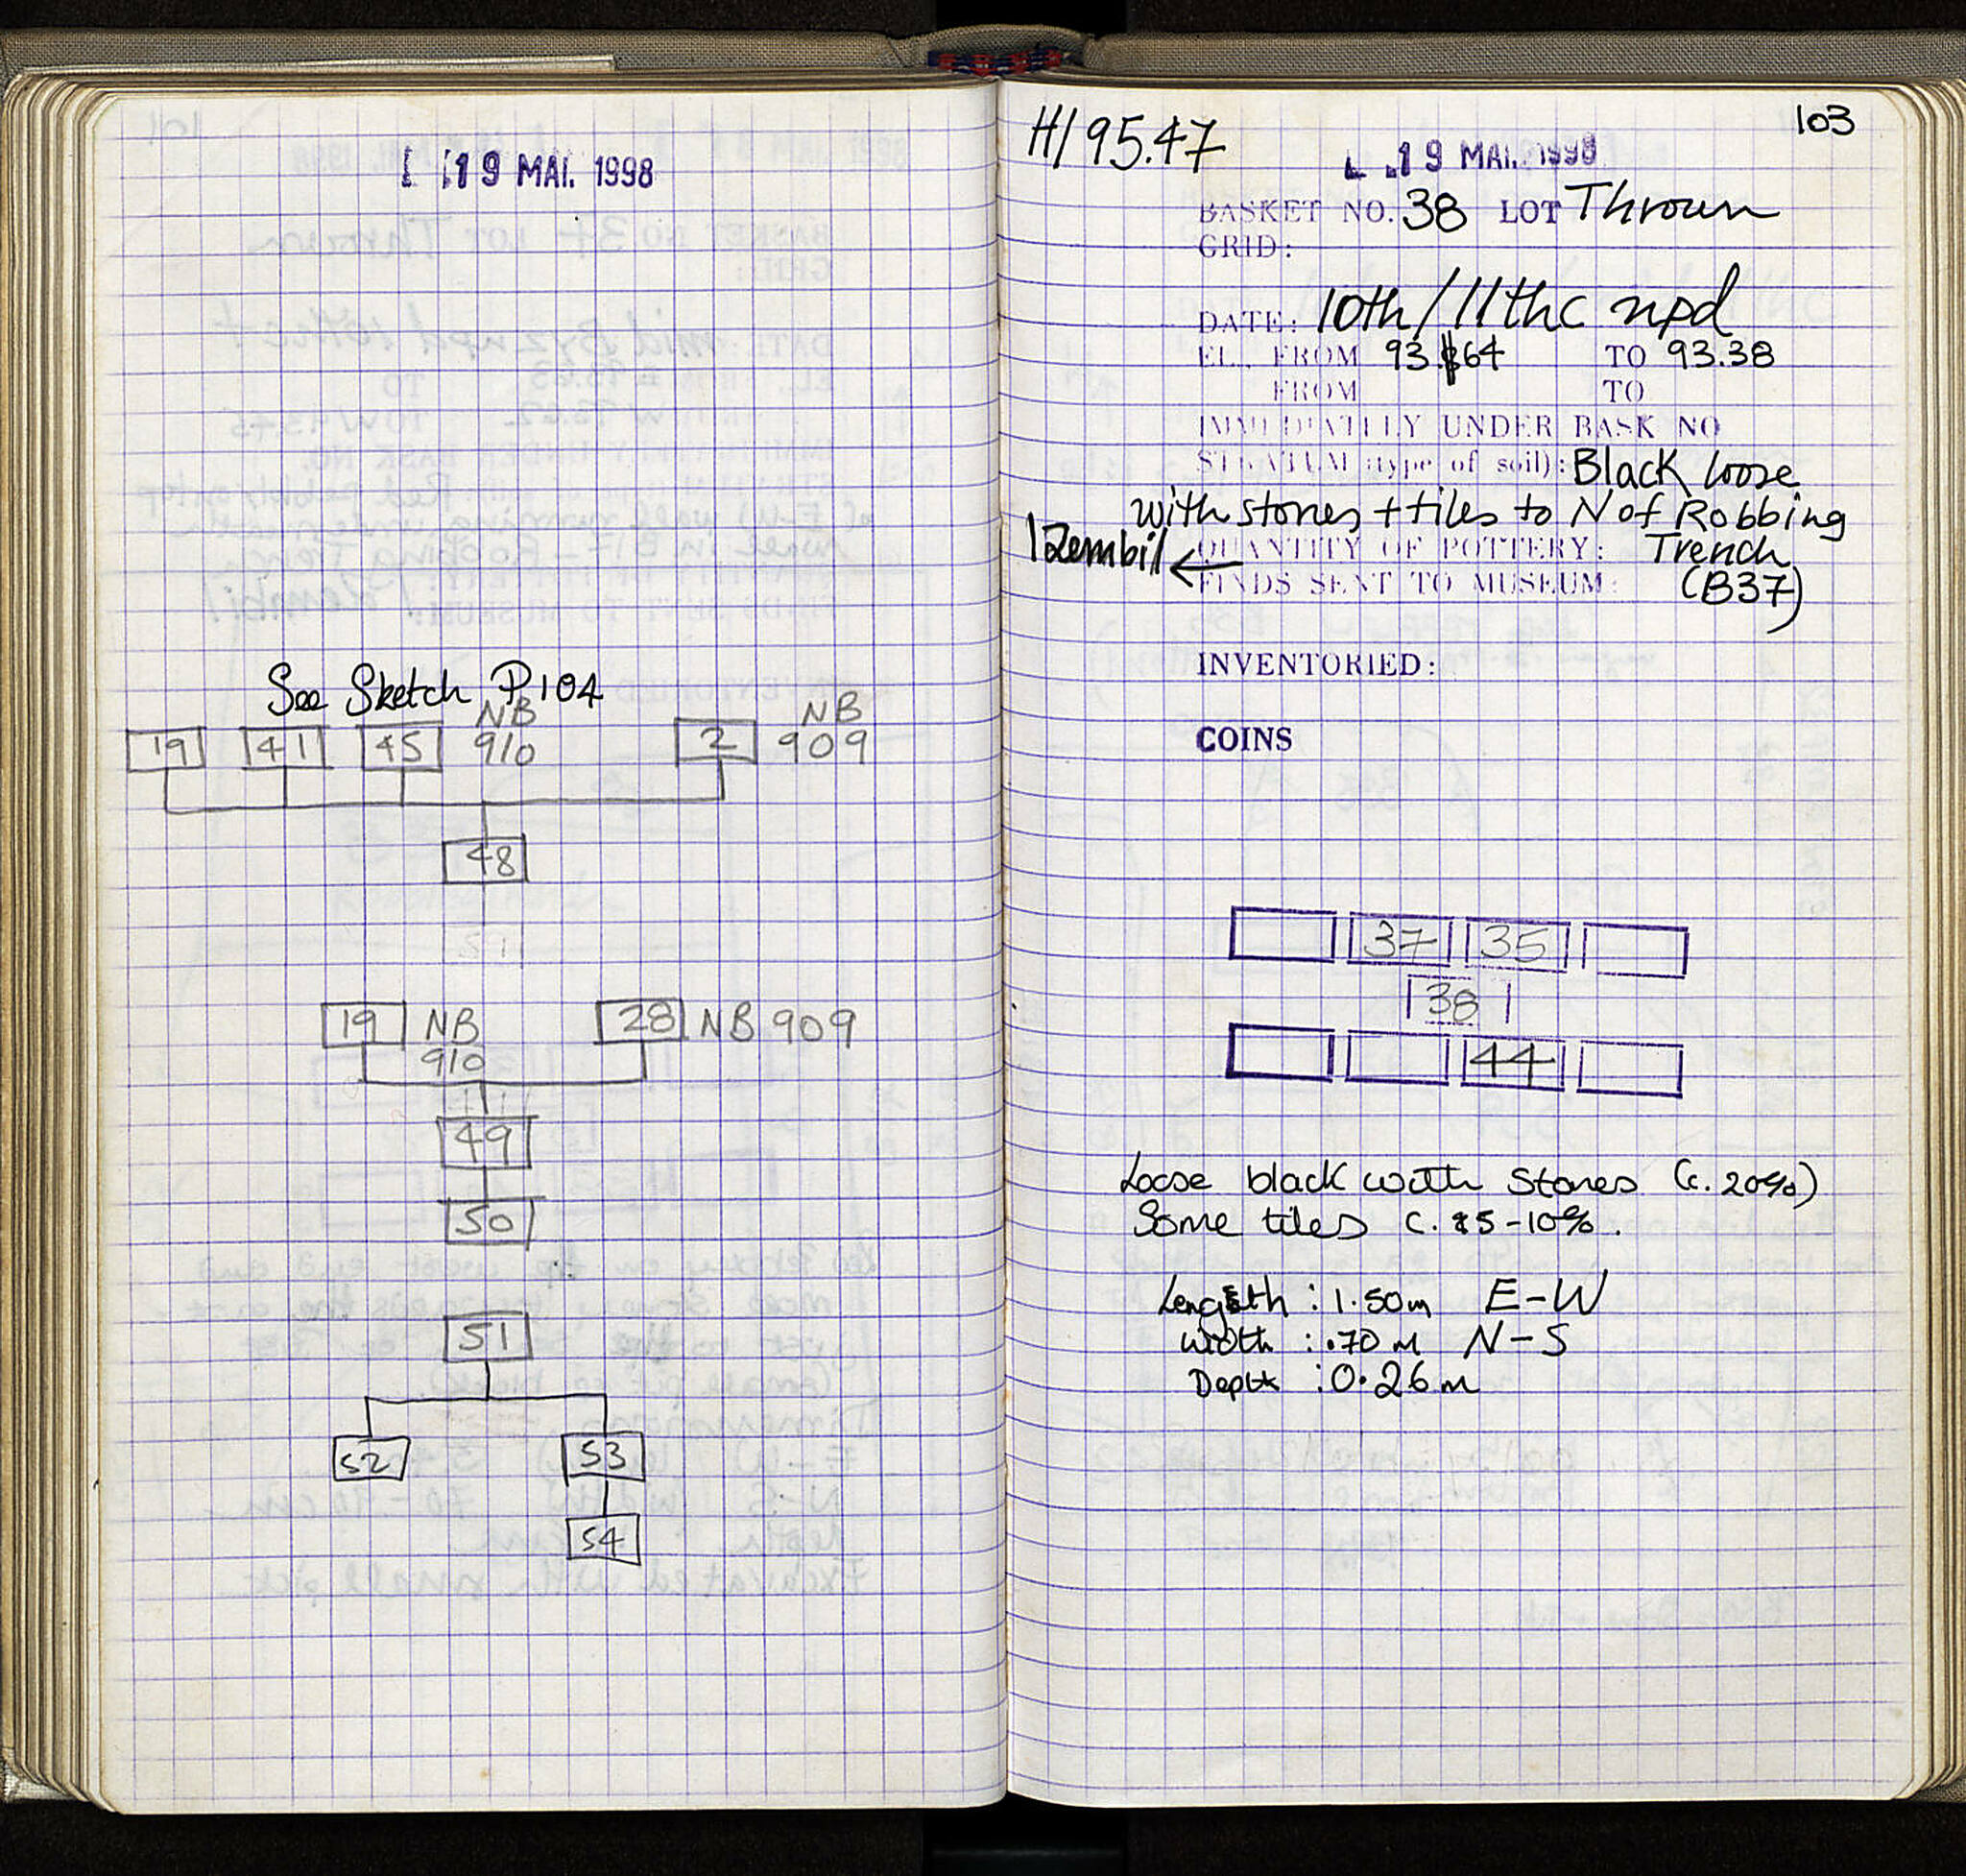 19 MAI. 1998
See Sketch P104
19 41 45 NB 910 2 NB 909
48
51
19 NB 910 28 NB 909
49
50
51
52 53
54
103
H/95.47
19 MAI. 1998
BASKET NO. 38 LOT Thrown
GRID:
DATE: 10th/11thc npd
EL., FROM 93.64 TO 93.38
FROM TO
IMMEDIATELY UNDER BASK NO
STRATUM (type of soil): Black loose
with stones + tiles to N of Robbing
QUANTITY OF POTTERY: Trench
1 Zembil ← FINDS SENT TO MUSEUM: (B37)
INVENTORIED:
COINS
37 35
38
44
Loose black with stones (c. 20%)
Some tiles c. 5-10%.
Length : 1.50m E-W
width : .70 m N-S
Depth : 0.26m